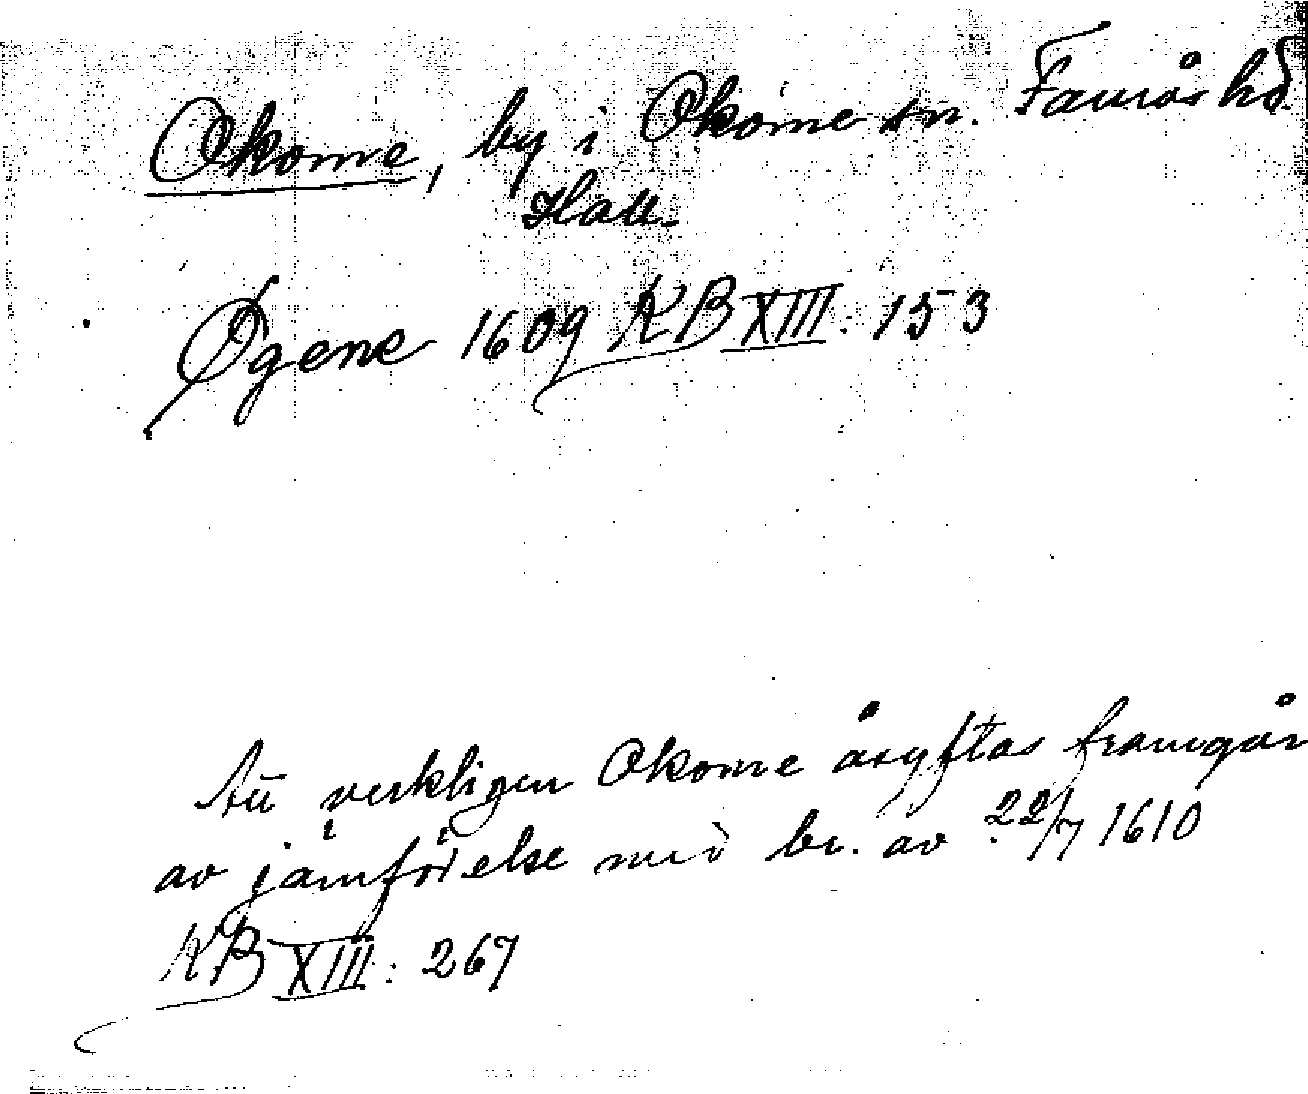 Okome, by i Okome sn. Faurås hd.
Hall.
Øgene 1609 KB XIII: 153
Att verkligen Okome åsyftas framgår
av jämförelse med br. av 22/7 1610
KB XIII: 267